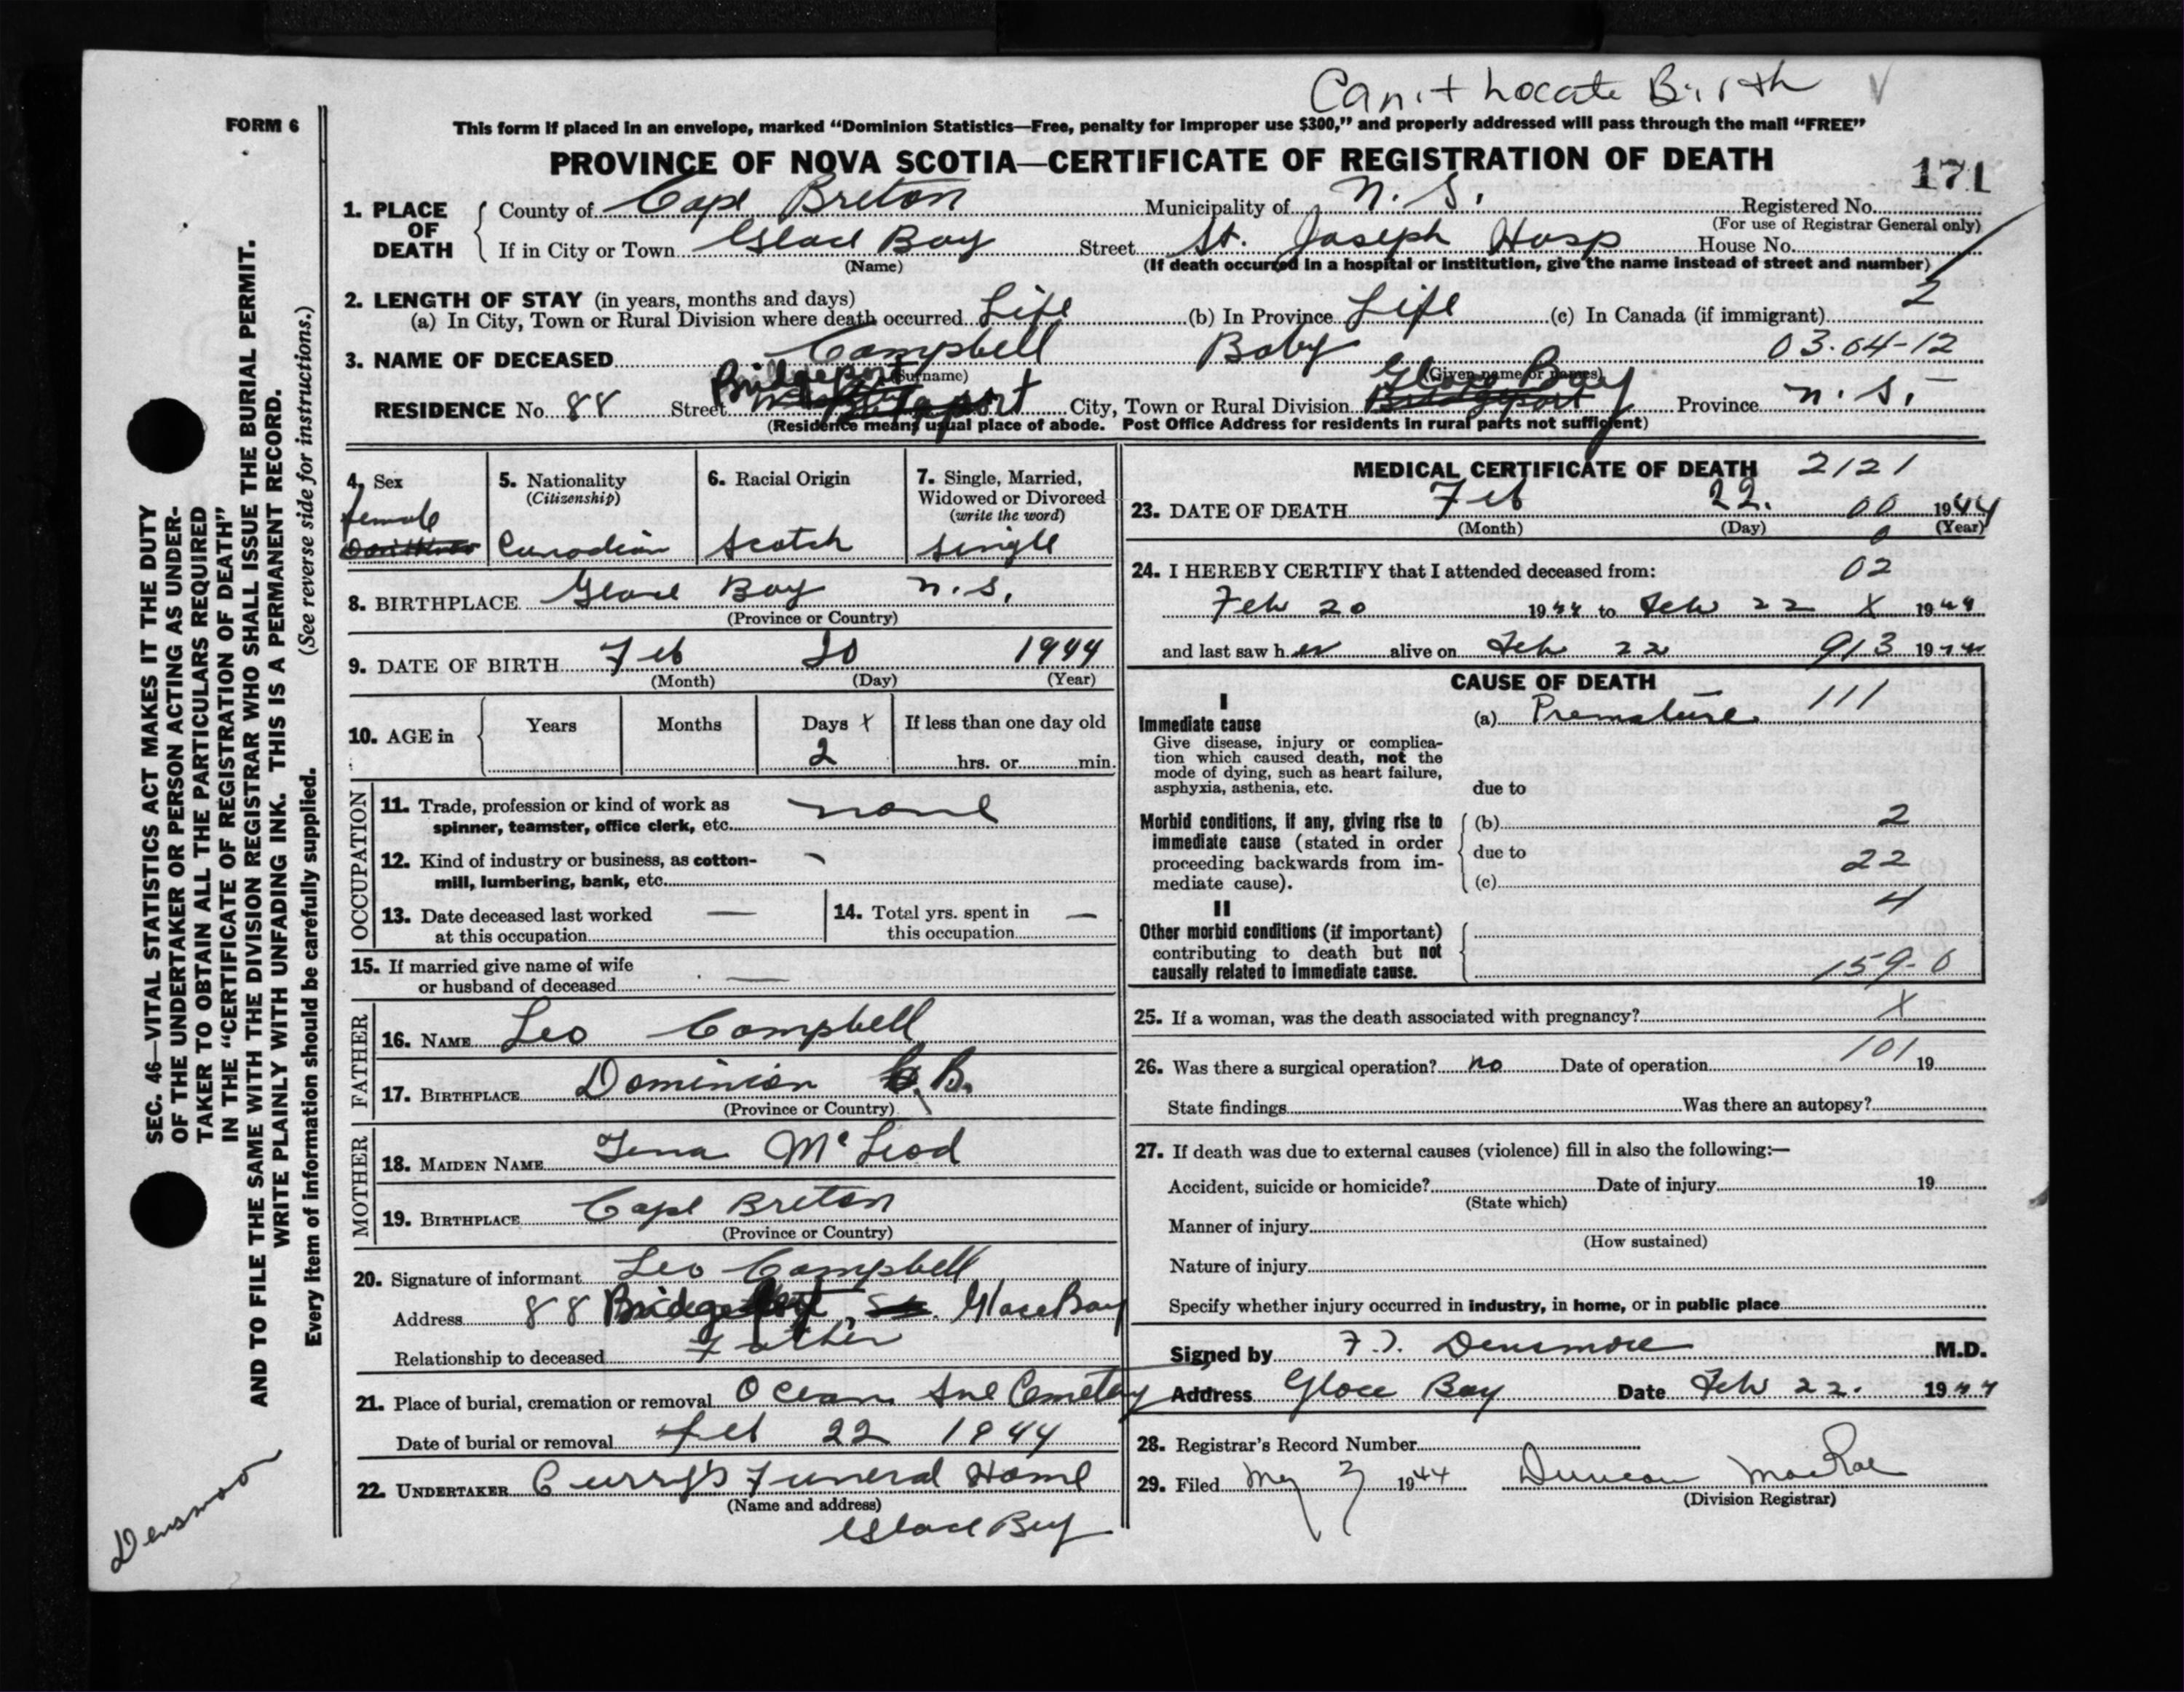 Can't Locate Birth V
FORM 6
This form if placed in an envelope, marked "Dominion Statistics—Free, penalty for improper use $300," and properly addressed will pass through the mail "FREE"
PROVINCE OF NOVA SCOTIA—CERTIFICATE OF REGISTRATION OF DEATH
171
1. PLACE OF DEATH
County of Cape Breton Municipality of N. S. Registered No.
(For use of Registrar General only)
If in City or Town Glace Bay Street St. Joseph Hosp House No.
(Name) (If death occurred in a hospital or institution, give the name instead of street and number)
2. LENGTH OF STAY (in years, months and days)
(a) In City, Town or Rural Division where death occurred Life (b) In Province Life (c) In Canada (if immigrant) 2
3. NAME OF DECEASED Campbell Baby 03-04-12
(Surname) (Given name or names)
RESIDENCE No. 88 Street Bridgeport City, Town or Rural Division Glace Bay Bridgeport Province N. S.
(Residence means usual place of abode. Post Office Address for residents in rural parts not sufficient)
4. Sex
female
5. Nationality
(Citizenship)
Canadian
6. Racial Origin
Scotch
7. Single, Married,
Widowed or Divorced
(write the word)
single
8. BIRTHPLACE Glace Bay N. S.
(Province or Country)
9. DATE OF BIRTH Feb 20 1944
(Month) (Day) (Year)
10. AGE in Years Months Days X If less than one day old
2 hrs. or min.
OCCUPATION
11. Trade, profession or kind of work as
spinner, teamster, office clerk, etc. none
12. Kind of industry or business, as cotton-
mill, lumbering, bank, etc.
13. Date deceased last worked
at this occupation —
14. Total yrs. spent in
this occupation —
15. If married give name of wife
or husband of deceased —
FATHER
16. NAME Leo Campbell
17. BIRTHPLACE Dominion C. B.
(Province or Country)
MOTHER
18. MAIDEN NAME Tena McLeod
19. BIRTHPLACE Cape Breton
(Province or Country)
20. Signature of informant Leo Campbell
Address 88 Bridgeport St. Glace Bay
Relationship to deceased Father
21. Place of burial, cremation or removal Ocean Ave Cemetery
Date of burial or removal Feb 22 1944
22. UNDERTAKER Curry's Funeral Home
(Name and address)
Glace Bay
MEDICAL CERTIFICATE OF DEATH 2121
23. DATE OF DEATH Feb 22. 00 1944
(Month) (Day) 0 (Year)
24. I HEREBY CERTIFY that I attended deceased from: 02
Feb 20 1944 to Feb 22 X 1944
and last saw her alive on Feb 22 913 1944
CAUSE OF DEATH
I
Immediate cause (a) Premature 111
Give disease, injury or complica-
tion which caused death, not the
mode of dying, such as heart failure,
asphyxia, asthenia, etc. due to
Morbid conditions, if any, giving rise to
immediate cause (stated in order
proceeding backwards from im-
mediate cause).
(b) 2
due to 22
(c) 4
II
Other morbid conditions (if important)
contributing to death but not
causally related to immediate cause. 159-0
25. If a woman, was the death associated with pregnancy? X
26. Was there a surgical operation? no Date of operation 101 19
State findings Was there an autopsy?
27. If death was due to external causes (violence) fill in also the following:—
Accident, suicide or homicide? Date of injury 19
(State which)
Manner of injury
(How sustained)
Nature of injury
Specify whether injury occurred in industry, in home, or in public place
Signed by F. T. Densmore M.D.
Address Glace Bay Date Feb 22. 1944
28. Registrar's Record Number
29. Filed 1944 Duncan MacRae
(Division Registrar)
SEC. 46—VITAL STATISTICS ACT MAKES IT THE DUTY
OF THE UNDERTAKER OR PERSON ACTING AS UNDER-
TAKER TO OBTAIN ALL THE PARTICULARS REQUIRED
IN THE "CERTIFICATE OF REGISTRATION OF DEATH"
AND TO FILE THE SAME WITH THE DIVISION REGISTRAR WHO SHALL ISSUE THE BURIAL PERMIT.
WRITE PLAINLY WITH UNFADING INK. THIS IS A PERMANENT RECORD.
Every item of information should be carefully supplied. (See reverse side for instructions.)
Densmoo